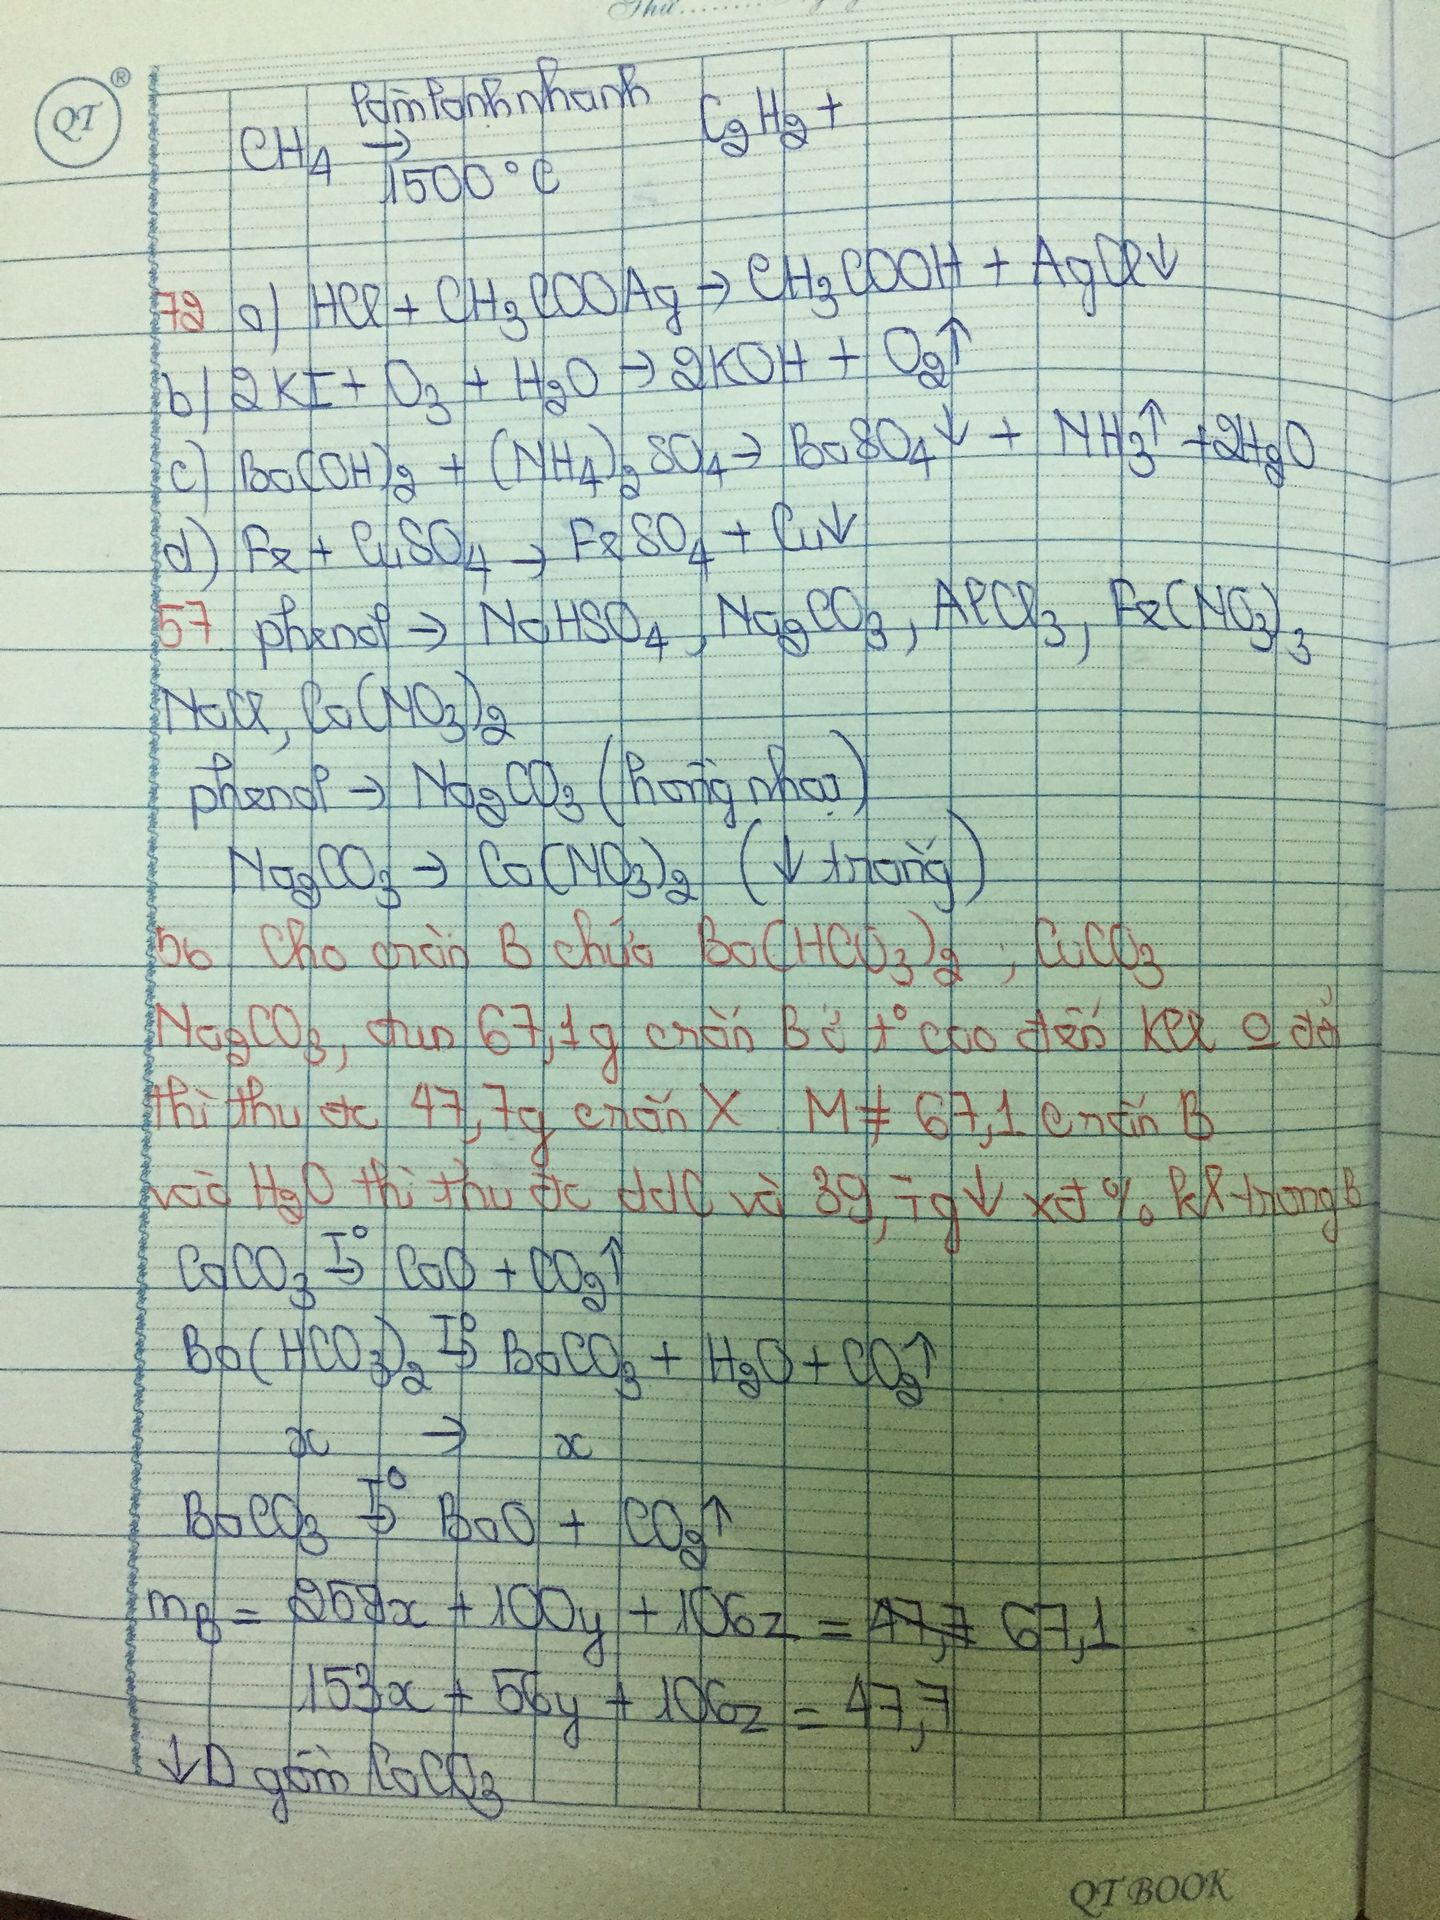 Thứ
QT ®
làm lạnh nhanh
CH4 → C2H2 +
1500°C
72 a) HCl + CH3COOAg → CH3COOH + AgCl↓
b) 2KI + O3 + H2O → 2KOH + O2↑
c) Ba(OH)2 + (NH4)2SO4 → BaSO4↓ + NH3↑ + 2H2O
d) Fe + CuSO4 → FeSO4 + Cu↓
57 phenol → NaHSO4, Na2CO3, AlCl3, Fe(NO3)3
NaCl, Ca(NO3)2
phenol → Na2CO3 (hồng nhạt)
Na2CO3 → Ca(NO3)2 (↓ trắng)
56 Cho crắn B chứa Ba(HCO3)2, CaCO3
Na2CO3, đun 67,1g crắn B ở t° cao đến KLg o đổi
thì thu đc 47,7g crắn X. M≠ 67,1 crắn B
vào H2O thì thu đc ddC và 39,4g↓ xđ % kl trong B
CaCO3 T°→ CaO + CO2↑
Ba(HCO3)2 T°→ BaCO3 + H2O + CO2↑
x → x
BaCO3 T°→ BaO + CO2↑
mB = 259x + 100y + 106z = 47,7 67,1
153x + 56y + 106z = 47,7
↓D gồm CaCO3
QT BOOK